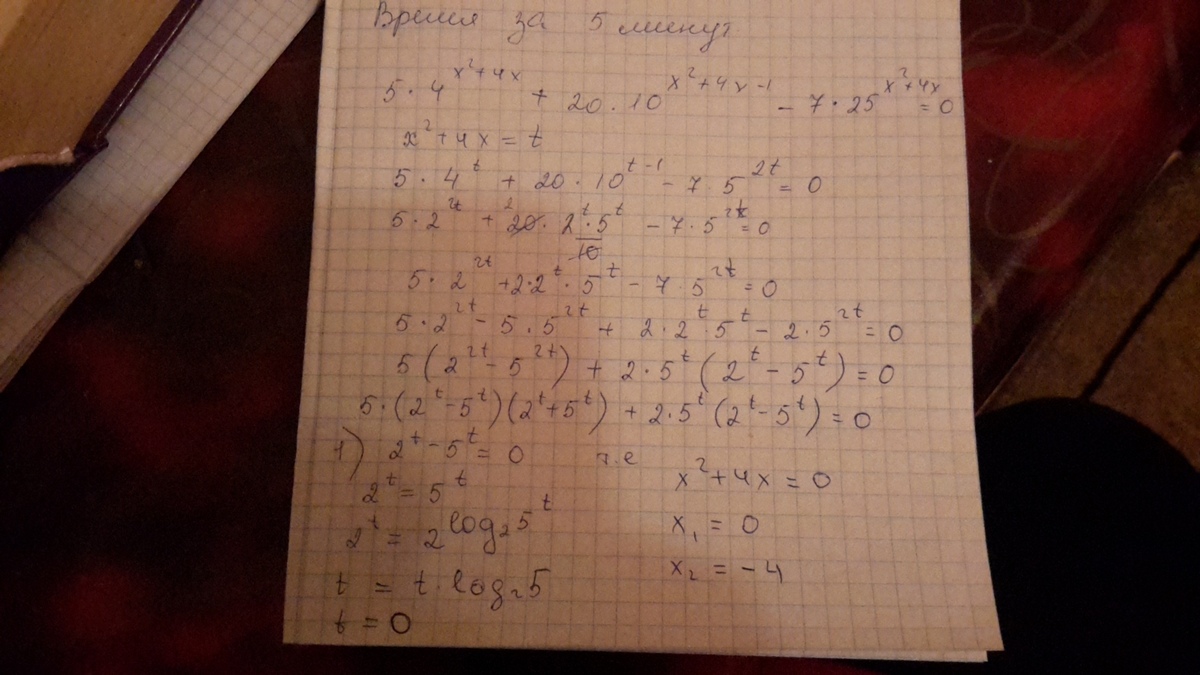 Время за 5 минут
5·4^(x²+4x) + 20·10^(x²+4x-1) - 7·25^(x²+4x) = 0
x²+4x = t
5·4^t + 20·10^(t-1) - 7·5^(2t) = 0
5·2^(2t) + 20·2^t·5^t/10 - 7·5^(2t) = 0
5·2^(2t) + 2·2^t·5^t - 7·5^(2t) = 0
5·2^(2t) - 5·5^(2t) + 2·2^t·5^t - 2·5^(2t) = 0
5(2^(2t) - 5^(2t)) + 2·5^t(2^t - 5^t) = 0
5·(2^t-5^t)(2^t+5^t) + 2·5^t(2^t-5^t) = 0
1) 2^t - 5^t = 0 т.е
2^t = 5^t
2^t = 2^(log₂5^t)
t = t·log₂5
t = 0
x²+4x = 0
x₁ = 0
x₂ = -4